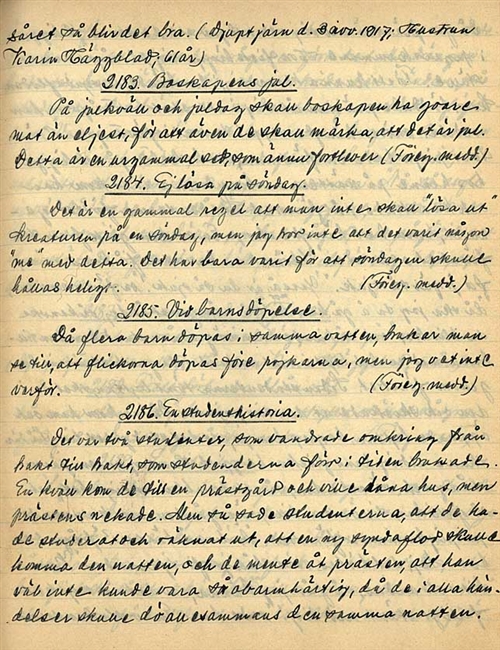 såret så blir det bra. (Djuptjärn d. 3 nov. 1917, Hustrun
Karin Häggblad, 61 år)
2183. Boskapens jul.
På julkväll och juldag skall boskapen ha godre
mat än eljest, för att även de skall märka, att det är jul.
Detta är en urgammal sed, som ännu fortlever (Föreg. medd.)
2184. Ej lösa på söndag.
Det är en gammal regel att man inte skall "lösa ut"
kreaturen på en söndag, men jag tror inte att det varit någon
"me med detta. Det har bara varit för att söndagen skulle
hållas helig. (Föreg. medd.)
2185. Vid barnsdöpelse.
Då flera barn döpas i samma vatten, brukar man
se till, att flickorna döpas före pojkarna, men jag vet inte
varför. (Föreg. medd.)
2186. En studenthistoria.
Det var två studenter, som vandrade omkring från
trakt till trakt, som studenderna förr i tiden brukade.
En kväll kom de till en prästgård och ville låna hus, men
prästens nekade. Men så sade studenterna, att de ha-
de studerat och räknat ut, att en ny syndaflod skulle
komma den natten, och de mente åt prästen, att han
väl inte kunde vara så obarmhärtig, då de i alla hän-
delser skulle dö allesammans den samma natten.